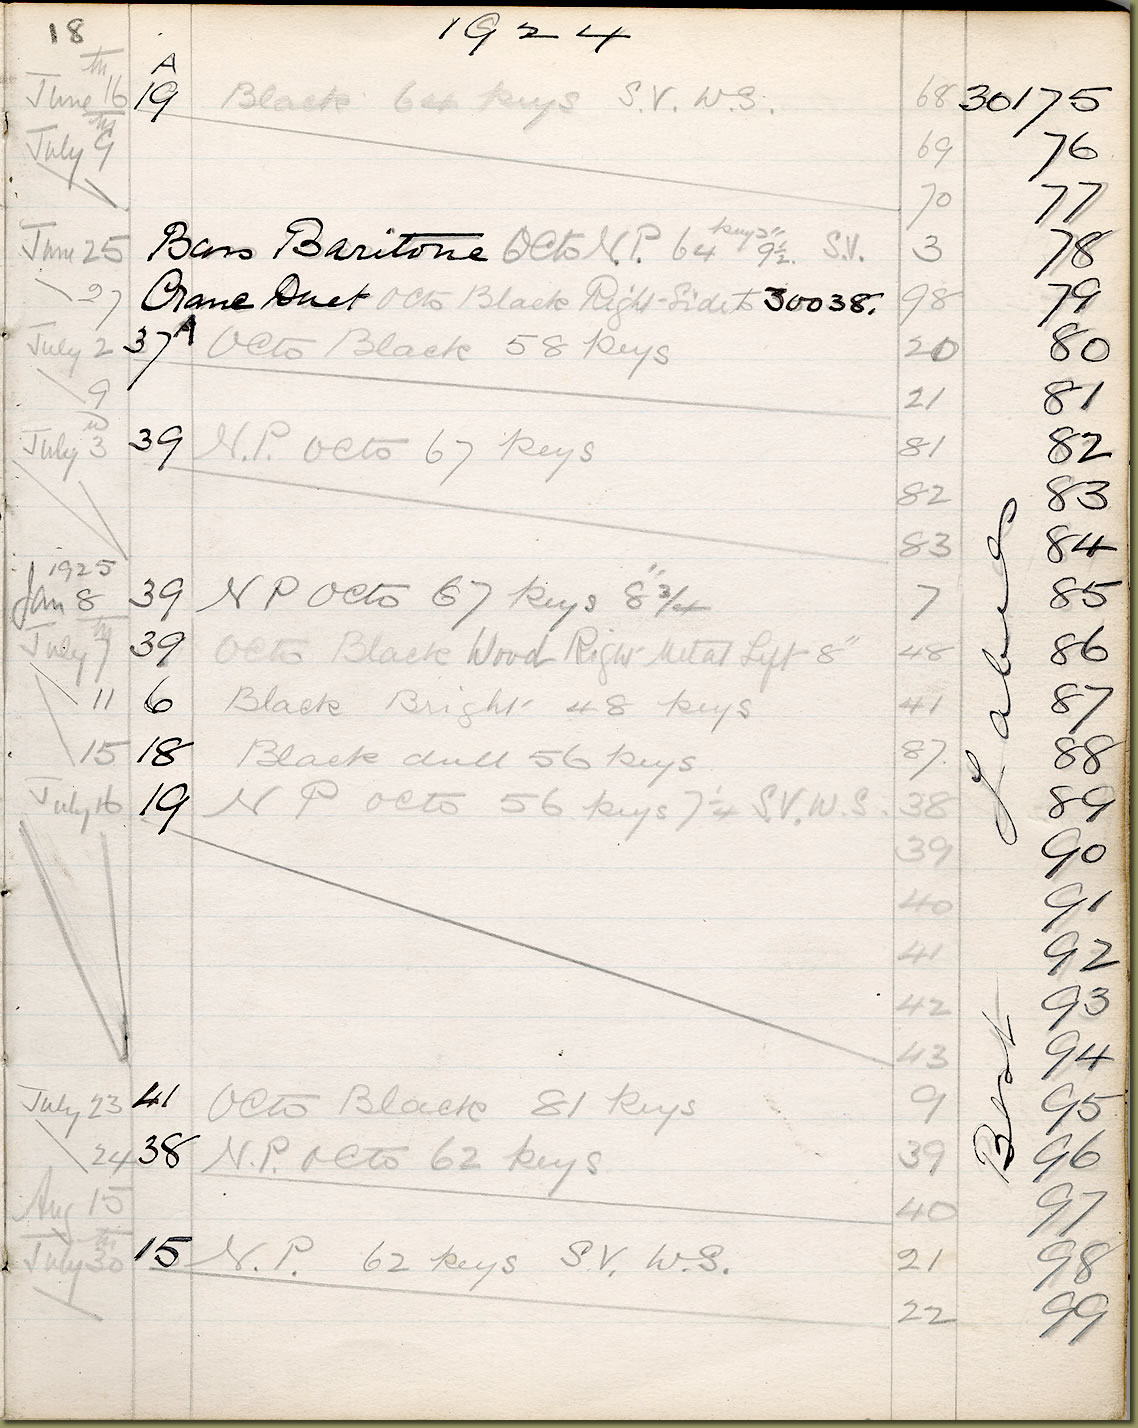 18 1924
A
June 16th 19 Black 64 keys S.V. W.S. 68 30175
July 9th 69 76
70 77
June 25 Bass Baritone Octo N.P. 64 keys 9½" S.V. 3 78
27 Crane Duet Octo Black Right-Side to 30038. 98 79
July 2 37A Octo Black 58 keys 20 80
9 21 81
July 3 39 N.P. Octo 67 keys 81 82
82 83
83 84
1925
Jan 8 39 N P Octo 67 keys 8¾" 7 85
July 7th 39 Octo Black Wood Right Metal Left 8" 48 86
11 6 Black Bright 48 keys 41 87
15 18 Black dull 56 keys 87. 88
July 16 19 N P Octo 56 keys 7¼ S.V. W.S. 38 89
39 90
40 91
41 92
42 93
43 94
July 23 41 Octo Black 81 keys 9 95
24 38 N.P. Octo 62 keys 39 96
Aug 15 40 97
July 30th 15 N.P. 62 keys S.V. W.S. 21 98
22 99
Best Labels